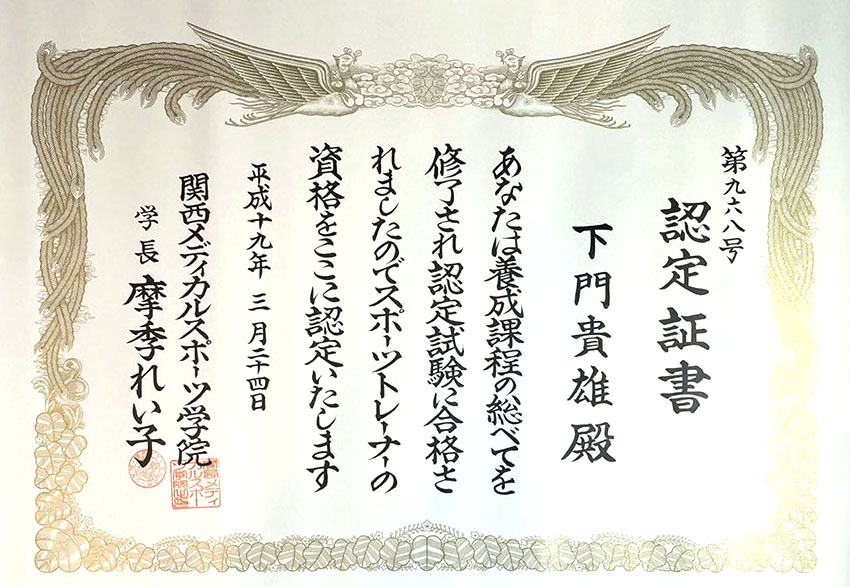 第九六八号
認定証書
下門貴雄殿
あなたは養成課程の総べてを
修了され認定試験に合格さ
れましたのでスポーツトレーナーの
資格をここに認定いたします
平成十九年 三月二十四日
関西メディカルスポーツ学院
学長 摩季れい子